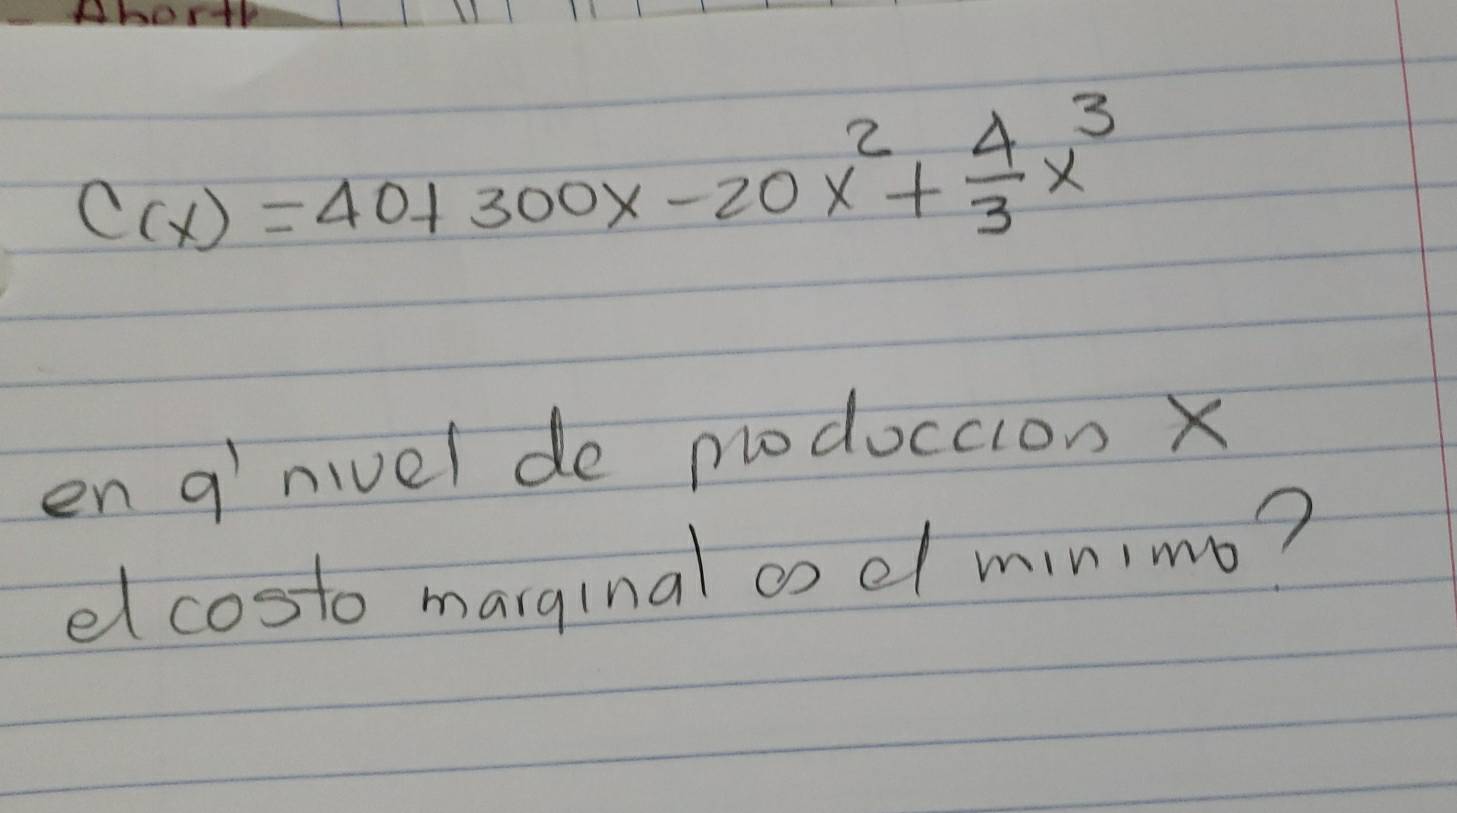 C(x) = 40 + 300x - 20x² + 4/3 x³
en q' nivel de produccion X
el costo marginal es el minimo?